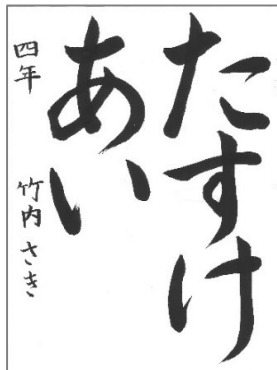 たすけ
あい
四年 竹内さき